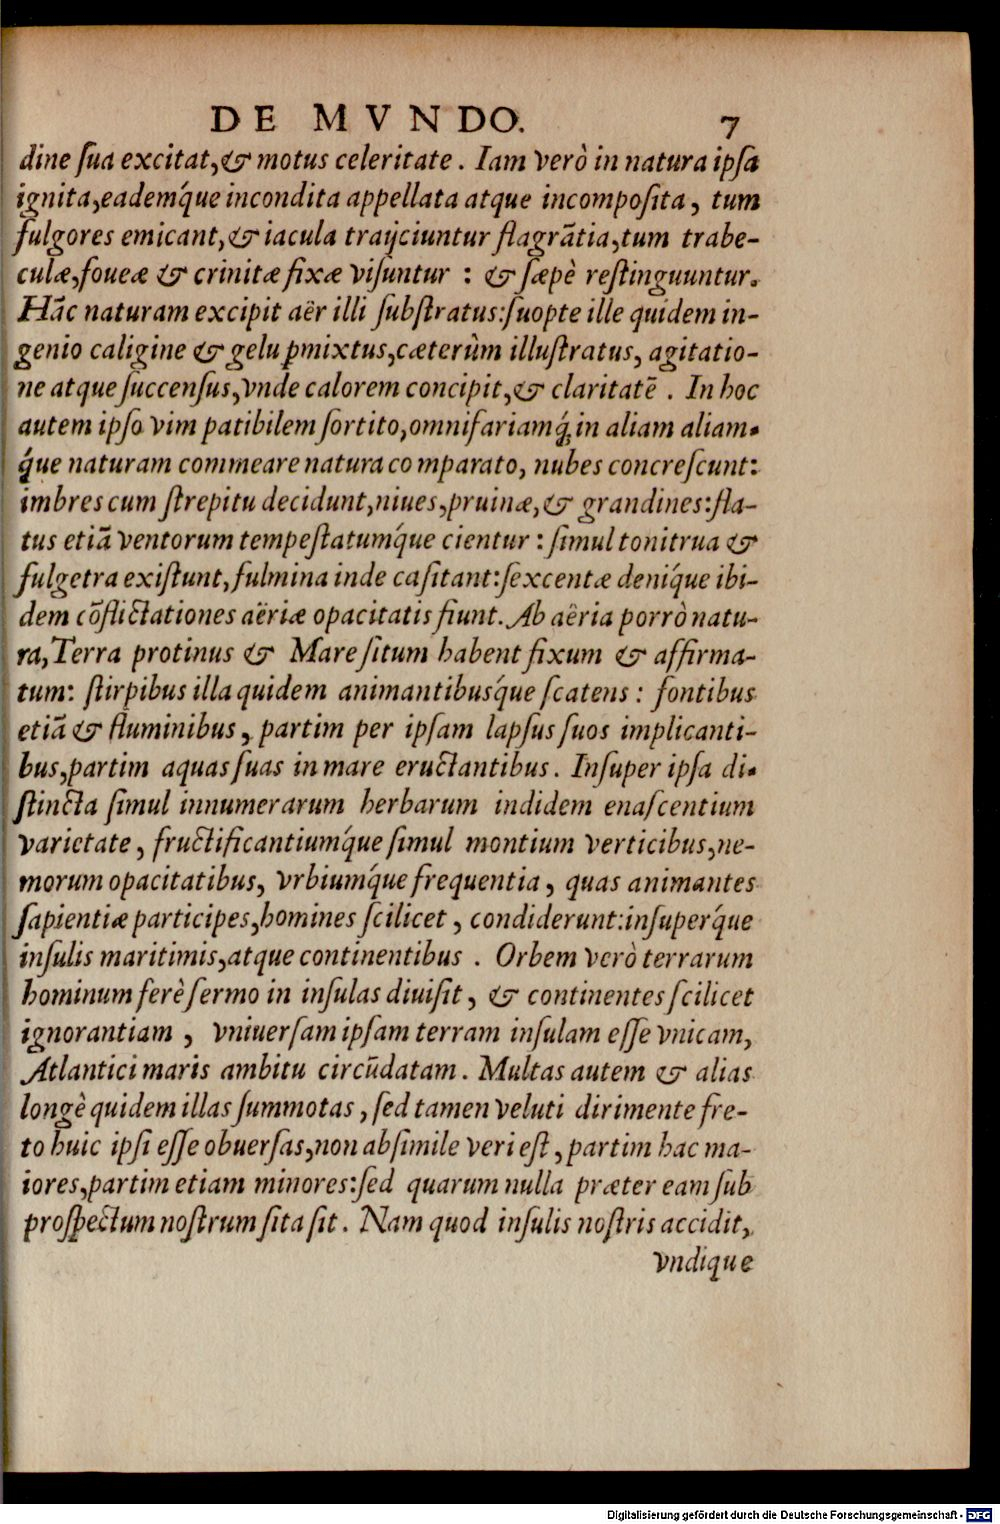 DE MVNDO. 7
dine ſua excitat,& motus celeritate. Iam verò in natura ipſa
ignita,eadeḿque incondita appellata atque incompoſita, tum
fulgores emicant,& iacula traijciuntur flagrãtia,tum trabe-
culæ,foueæ & crinitæ fixæ viſuntur : & ſæpè reſtinguuntur.
Hãc naturam excipit aër illi ſubſtratus:ſuopte ille quidem in-
genio caligine & gelu ꝑmixtus,cæterùm illuſtratus, agitatio-
ne atque ſuccenſus,vnde calorem concipit,& claritatẽ . In hoc
autem ipſo vim patibilem ſortito,omnifariamq́; in aliam aliam-
q́ue naturam commeare natura comparato, nubes concreſcunt:
imbres cum ſtrepitu decidunt,niues,pruinæ,& grandines:fla-
tus etiã ventorum tempeſtatumq́ue cientur : ſimul tonitrua &
fulgetra exiſtunt,fulmina inde caſitant:ſexcentæ deniq́ue ibi-
dem cõflictationes aëriæ opacitatis fiunt. Ab aëria porrò natu-
ra,Terra protinus & Mare ſitum habent fixum & affirma-
tum: ſtirpibus illa quidem animantibuſq́ue ſcatens : fontibus
etiã & fluminibus, partim per ipſam lapſus ſuos implicanti-
bus,partim aquas ſuas in mare eructantibus. Inſuper ipſa di-
ſtincta ſimul innumerarum herbarum indidem enaſcentium
varietate, fructificantiumq́ue ſimul montium verticibus,ne-
morum opacitatibus, vrbiumq́ue frequentia, quas animantes
ſapientiæ participes,homines ſcilicet, condiderunt:inſuperq́ue
inſulis maritimis,atque continentibus . Orbem verò terrarum
hominum ferè ſermo in inſulas diuiſit, & continentes ſcilicet
ignorantiam , vniuerſam ipſam terram inſulam eſſe vnicam,
Atlantici maris ambitu circũdatam. Multas autem & alias
longè quidem illas ſummotas, ſed tamen veluti dirimente fre-
to huic ipſi eſſe obuerſas,non abſimile veri eſt, partim hac ma-
iores,partim etiam minores:ſed quarum nulla præter eam ſub
proſpectum noſtrum ſita ſit. Nam quod inſulis noſtris accidit,
vndique
Digitalisierung gefördert durch die Deutsche Forschungsgemeinschaft - DFG